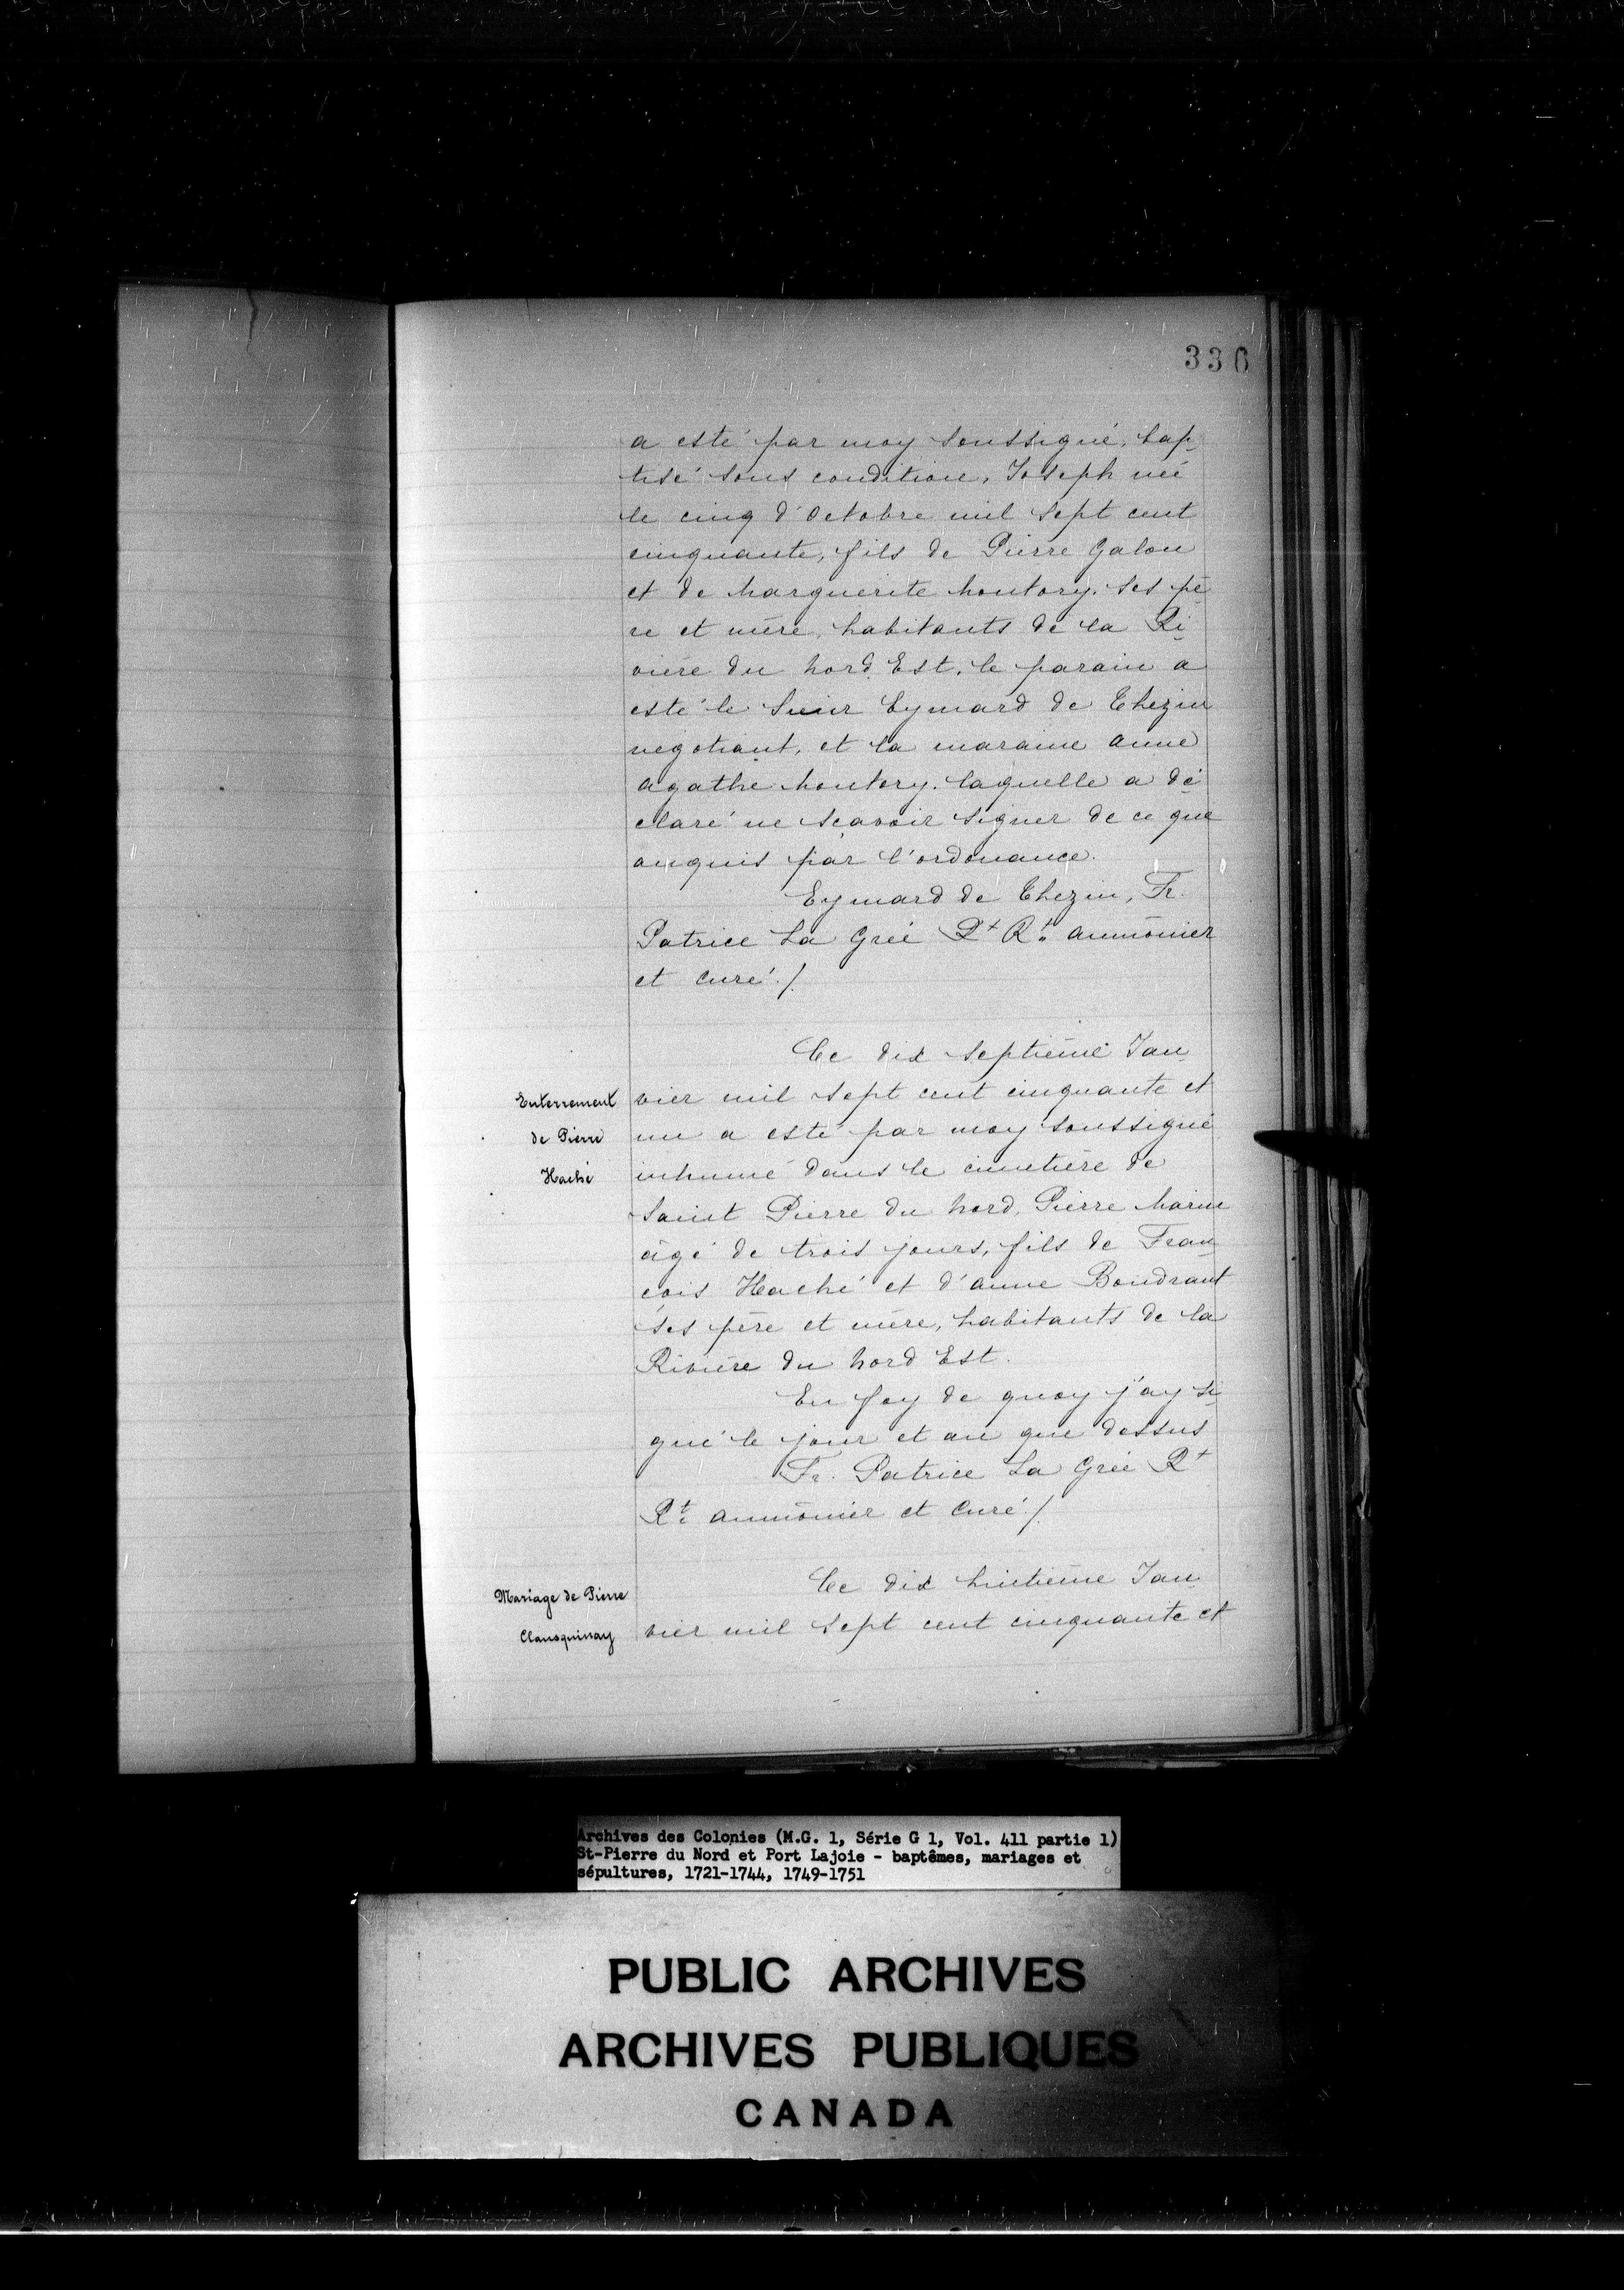 336
a esté par moy soussigné, bap
tisé sous condition, Joseph née
le cinq d'Octobre mil sept cent
cinquante, fils de Pierre Galon
et de Marguerite Montory, ses pé
re et mère, habitants de la Ri
vière du Nord Est, le parain a
esté le Sieur Eymard de Thezin
negotiant, et la maraine anne
agathe Montory, laquelle a dé
claré ne sçavoir signer de ce que
anquis par l'ordonance.
Eymard de Thezin, Fr.
Patrice La Greé Pt Rt. aumônier
et curé ./.
Ce dix septième Jan
Enterrement
de Pierre
Haché
vier mil sept cent cinquante et
un a esté par moy soussigné
inhumé dans le cimetière de
Saint Pierre du Nord, Pierre Marin
âgé de trois jours, fils de Fran
çois Haché et d'anne Boudraut
ses père et mère, habitants de la
Rivière du Nord Est.
En foy de quoy j'ay si
gné le jour et an que dessus
Fr. Patrice La Greé Pt
Rt. aumônier et Curé ./.
Ce dix huitième Jan
Mariage de Pierre
Clansquinay
vier mil sept cent cinquante et
Archives des Colonies (M.G. 1, Série G 1, Vol. 411 partie 1)
St-Pierre du Nord et Port Lajoie - baptêmes, mariages et
sépultures, 1721-1744, 1749-1751
PUBLIC ARCHIVES
ARCHIVES PUBLIQUES
CANADA